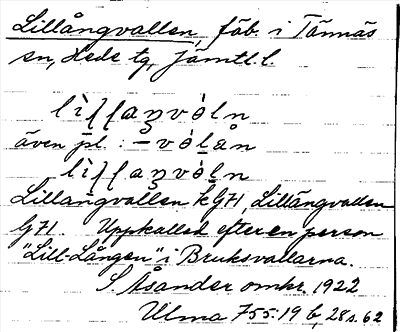 Lillångvallen, fäb. i Tännäs
sn, Hede tg, Jämtl. l.
även pl. :
Lillångvallen kG71, Lillångvallen
G71. Uppkallad efter en person
"Lill-Lången" i Bruksvallarna.
S. Åsander omkr. 1922
Ulma 755:19 b, 28 s. 62